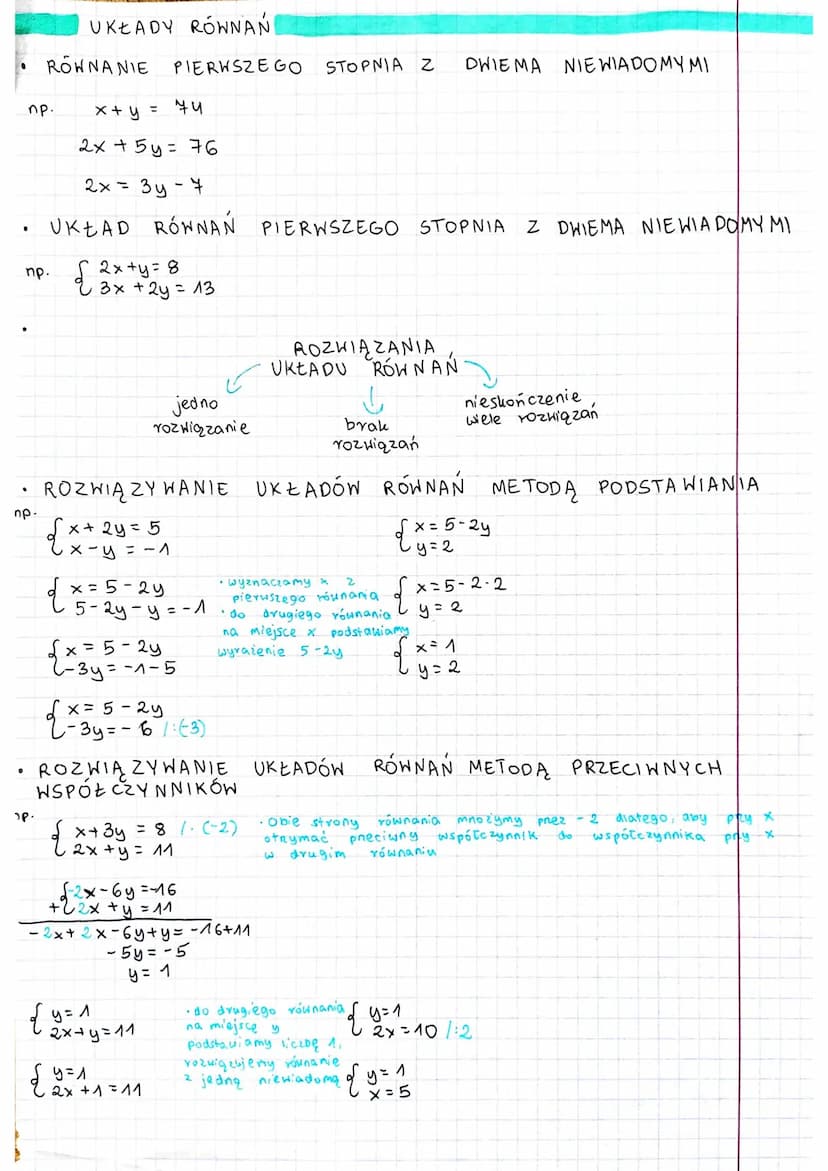 UKŁADY RÓWNAŃ
• RÓWNANIE PIERWSZEGO STOPNIA Z DWIEMA NIEWIADOMYMI
np. x+y = 74
2x + 5y = 76
2x = 3y - 7
• UKŁAD RÓWNAŃ PIERWSZEGO STOPNIA Z DWIEMA NIEWIADOMYMI
np. { 2x+y = 8
3x + 2y = 13
•
ROZWIĄZANIA
UKŁADU RÓWNAŃ
jedno
rozwiązanie
brak
rozwiązań
nieskończenie
wiele rozwiązań
• ROZWIĄZYWANIE UKŁADÓW RÓWNAŃ METODĄ PODSTAWIANIA
np.
{ x + 2y = 5
x - y = -1
{ x = 5 - 2y
5 - 2y - y = -1
• wyznaczamy x z
pierwszego równania
• do drugiego równania
na miejsce x podstawiamy
wyrażenie 5-2y
{ x = 5 - 2y
-3y = -1 - 5
{ x = 5 - 2y
-3y = - 6 /:(-3)
{ x = 5 - 2y
y = 2
{ x = 5 - 2·2
y = 2
{ x = 1
y = 2
• ROZWIĄZYWANIE UKŁADÓW RÓWNAŃ METODĄ PRZECIWNYCH
WSPÓŁCZYNNIKÓW
np.
{ x + 3y = 8 /· (-2)
2x + y = 11
• Obie strony równania mnożymy przez -2 dlatego, aby przy x
otrzymać przeciwny współczynnik do współczynnika przy x
w drugim równaniu
{ -2x - 6y = -16
+ 2x + y = 11
-2x + 2x - 6y + y = -16 + 11
-5y = -5
y = 1
{ y = 1
2x + y = 11
{ y = 1
2x + 1 = 11
• do drugiego równania
na miejsce y
podstawiamy liczbę 1,
rozwiązujemy równanie
z jedną niewiadomą
{ y = 1
2x = 10 /:2
{ y = 1
x = 5